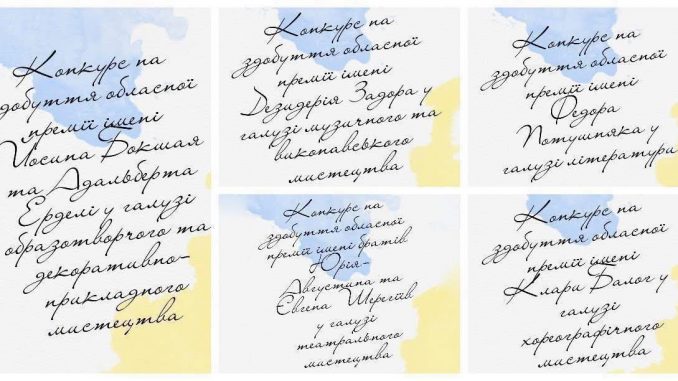 Конкурс на
здобуття обласної
премії імені
Йосипа Бокшая
та Адальберта
Ерделі у галузі
образотворчого та
декоративно-
прикладного
мистецтва
Конкурс на
здобуття обласної
премії імені
Дезидерія Задора у
галузі музичного та
виконавського
мистецтва
Конкурс на
здобуття обласної
премії імені
Федора
Потушняка у
галузі літератури
Конкурс на
здобуття обласної
премії імені братів
Юрія-
Августина та
Євгена Шерегіїв
у галузі
театрального
мистецтва
Конкурс на
здобуття обласної
премії імені
Клари Балог у
галузі
хореографічного
мистецтва